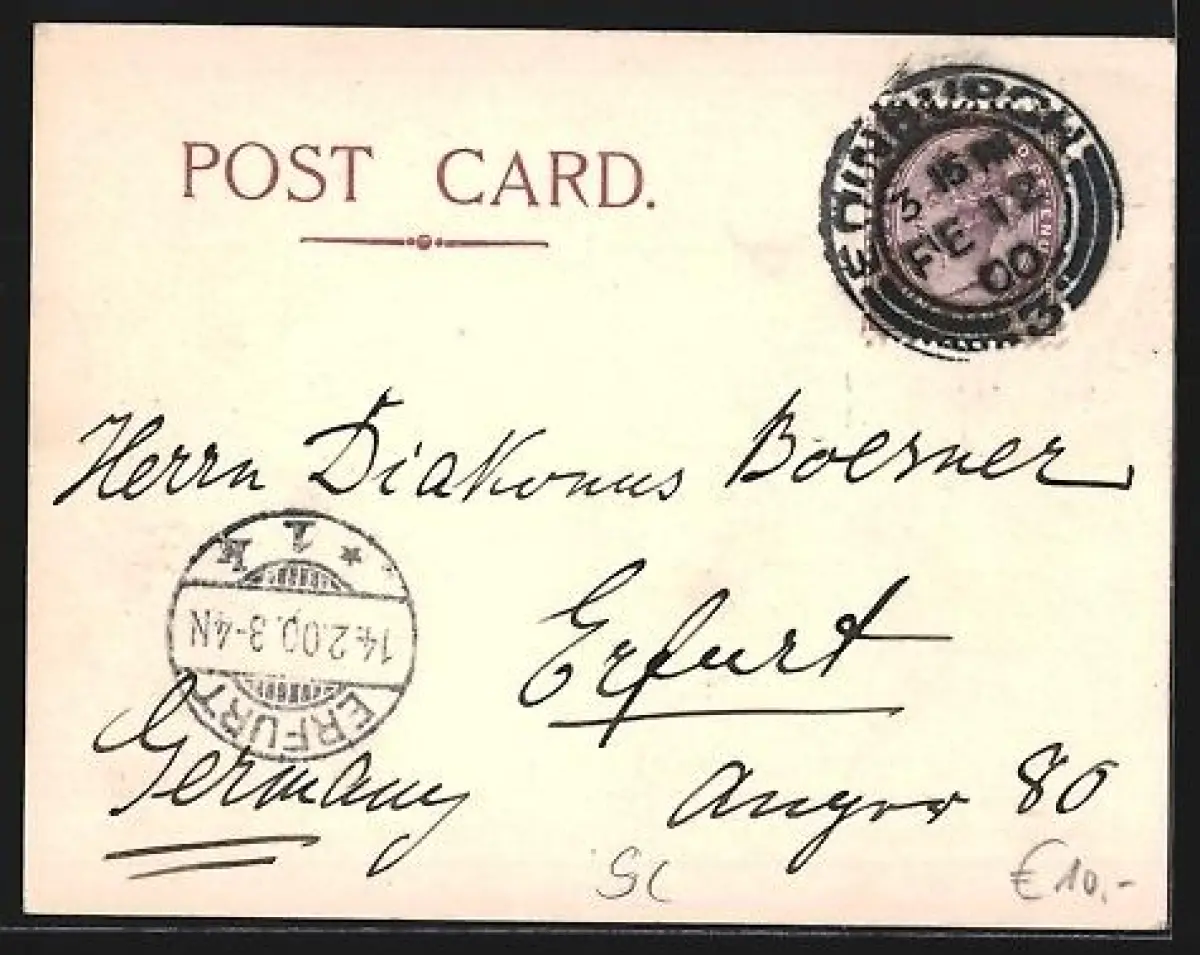 POST CARD.
EDINBURGH
3 15 PM
FE 12
00
3
Herrn Diakonus Boesner
Erfurt
Anger 80
Germany
ERFURT
14.2.00.3-4N
* 1 k
SC
€ 10,-